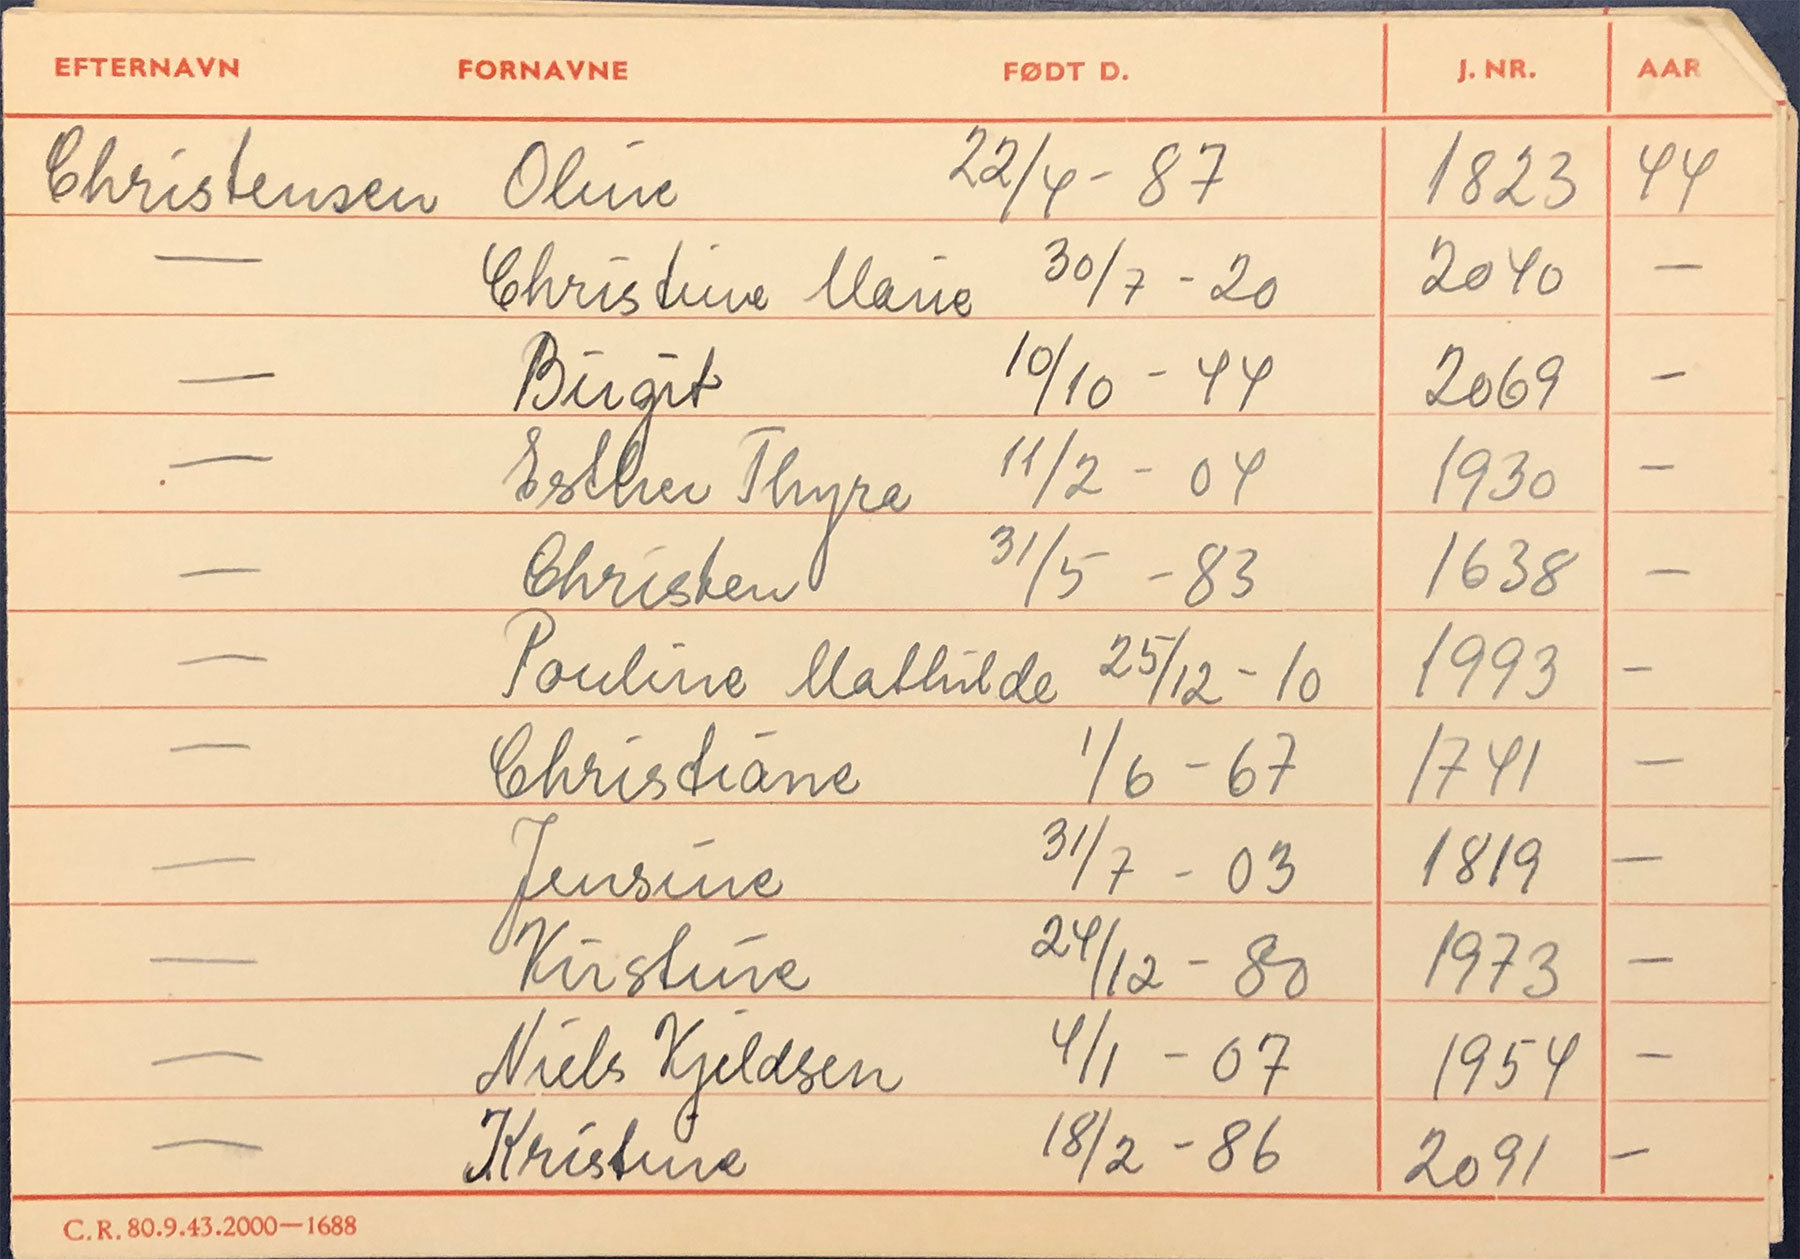 EFTERNAVN FORNAVNE FØDT D. J. NR. AAR
Christensen Oline 22/4 - 87 1823 44
— Christine Marie 30/7 - 20 2040 —
— Birgit 10/10 - 44 2069 —
— Esther Thyra 11/2 - 04 1930 —
— Christen 31/5 - 83 1638 —
— Pouline Mathilde 25/12 - 10 1993 —
— Christiane 1/6 - 67 1741 —
— Jensine 31/7 - 03 1819 —
— Kirstine 24/12 - 80 1973 —
— Niels Kjeldsen 4/1 - 07 1954 —
— Kristine 18/2 - 86 2091 —
C.R. 80.9.43.2000—1688